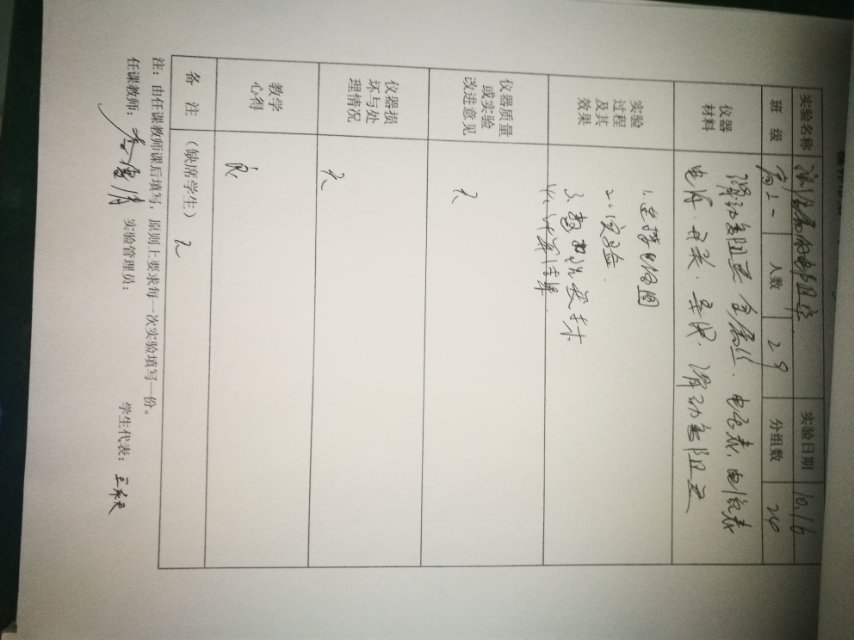 实验名称 测金属的电阻率 实验日期 10.16
班级 高二一 人数 29 分组数 24
仪器材料 滑动变阻器 金属丝．电压表．电流表
电源．开关．导线．滑动变阻器
实验过程及其效果 1.连接电路图
2.实验．
3.数据
4.计算结果
仪器质量或实验改进意见 无
仪器损坏与处理情况 无
教学心得 良
备注 （缺席学生） 无
注：由任课教师课后填写，原则上要求每一次实验填写一份。
任课教师： 实验管理员： 学生代表：